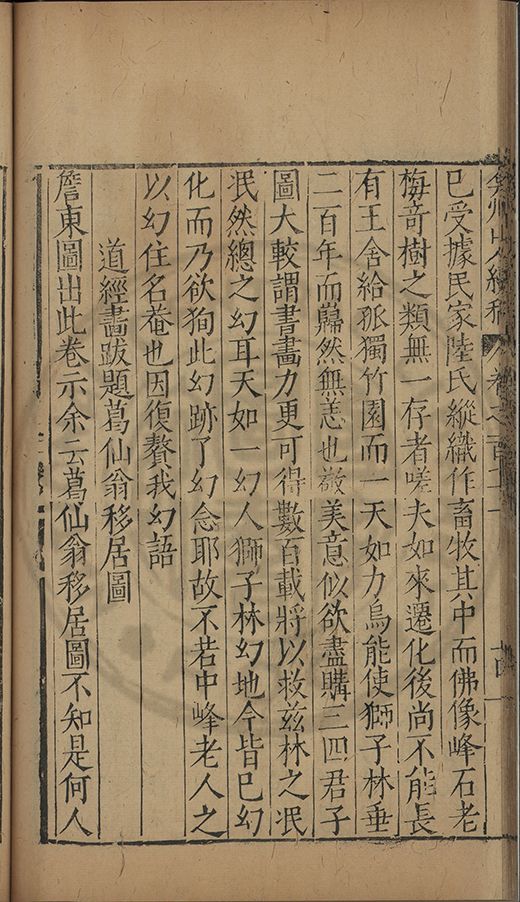 弇州山人續稿 卷之一百七十一 十四
已受據民家陸氏縱織作畜牧其中而佛像峰石老
梅奇樹之類無一存者嗟夫如來遷化後尚不能長
有王舍給孤獨竹園而一天如力烏能使獅子林垂
二百年而巋然無恙也敬美意似欲盡購三四君子
圖大較謂書畵力更可得數百載將以救茲林之泯
泯然總之幻耳天如一幻人獅子林幻地今皆已幻
化而乃欲狥此幻跡了幻念耶故不若中峰老人之
以幻住名菴也因復贅我幻語
道經畵跋題葛仙翁移居圖
詹東圖出此卷示余云葛仙翁移居圖不知是何人